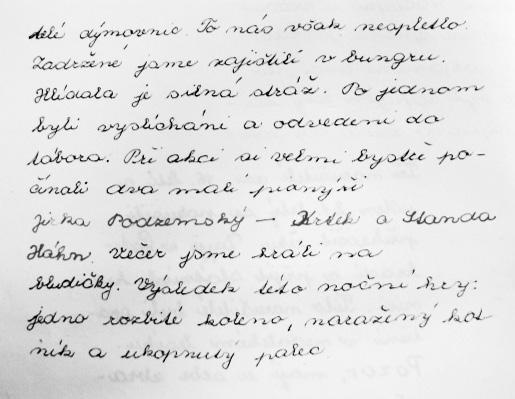 telé dýmovnic. To nás však neopletlo.
Zadržené jsme zajistili v bungru.
Hlídala je silná stráž. Po jednom
byli vyslícháni a odvedeni do
tábora. Při akci si velmi bystře po-
čínali dva malí pionýři
Jirka Podzemský – Krtek a Standa
Háhn. Večer jsme hráli na
bludičky. Výsledek této noční hry:
jedno rozbité koleno, naražený kot
ník a ukopnutý palec